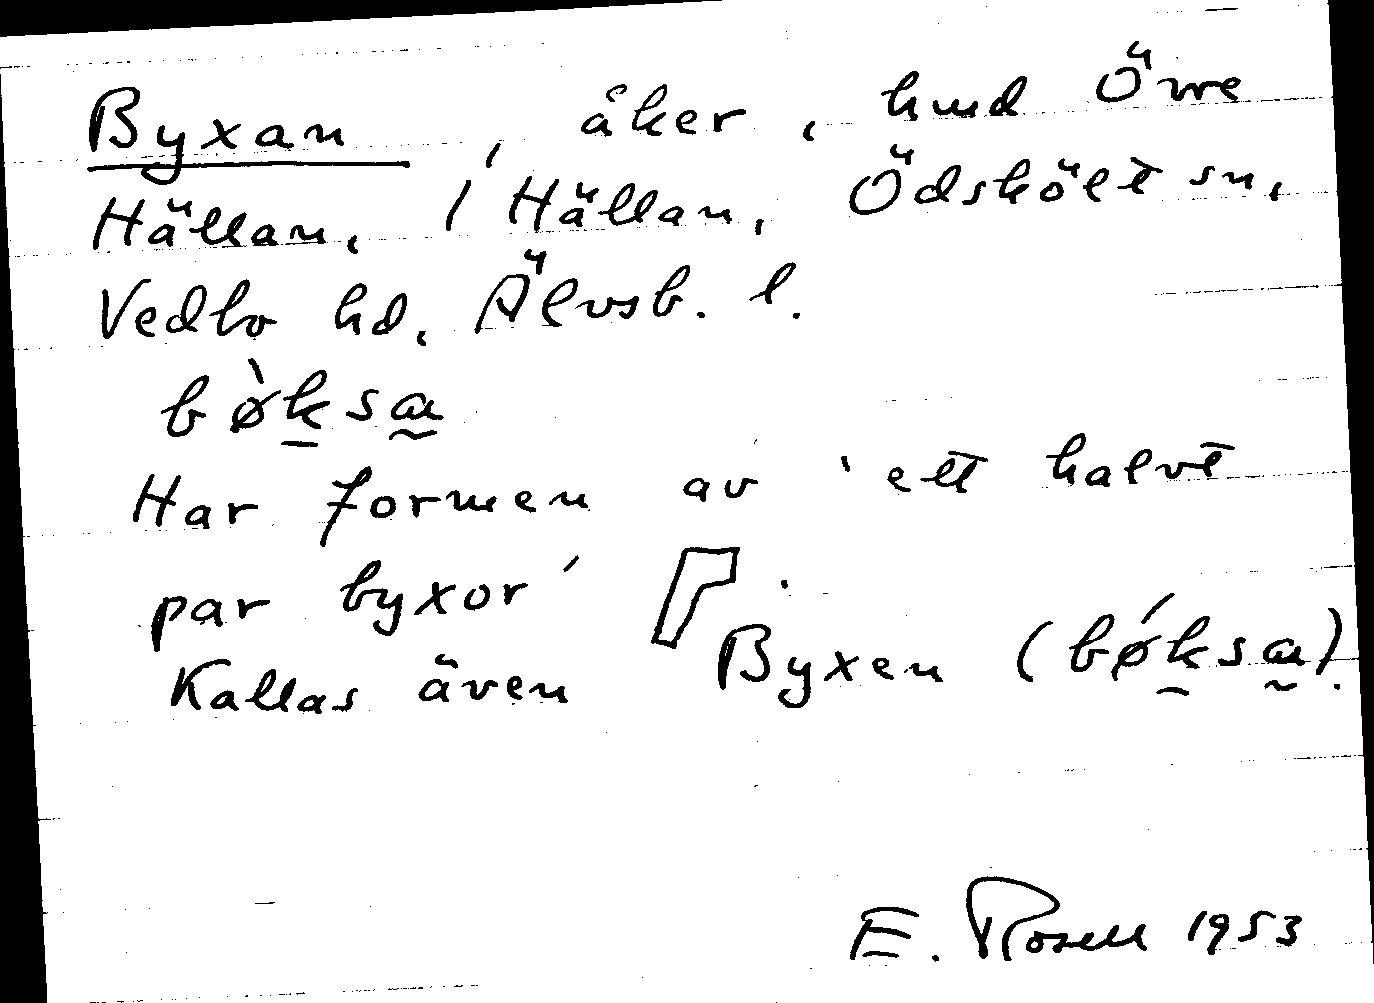 Byxan, åker, hmd Övre
Hällan, 1 Hällan, Ödskölt sn,
Vedbo hd, Älvsb. l.
bø̀ksa
Har formen av 'ett halvt
par byxor' .
Kallas även Byxen (bǿksa).
E. Rosell 1953